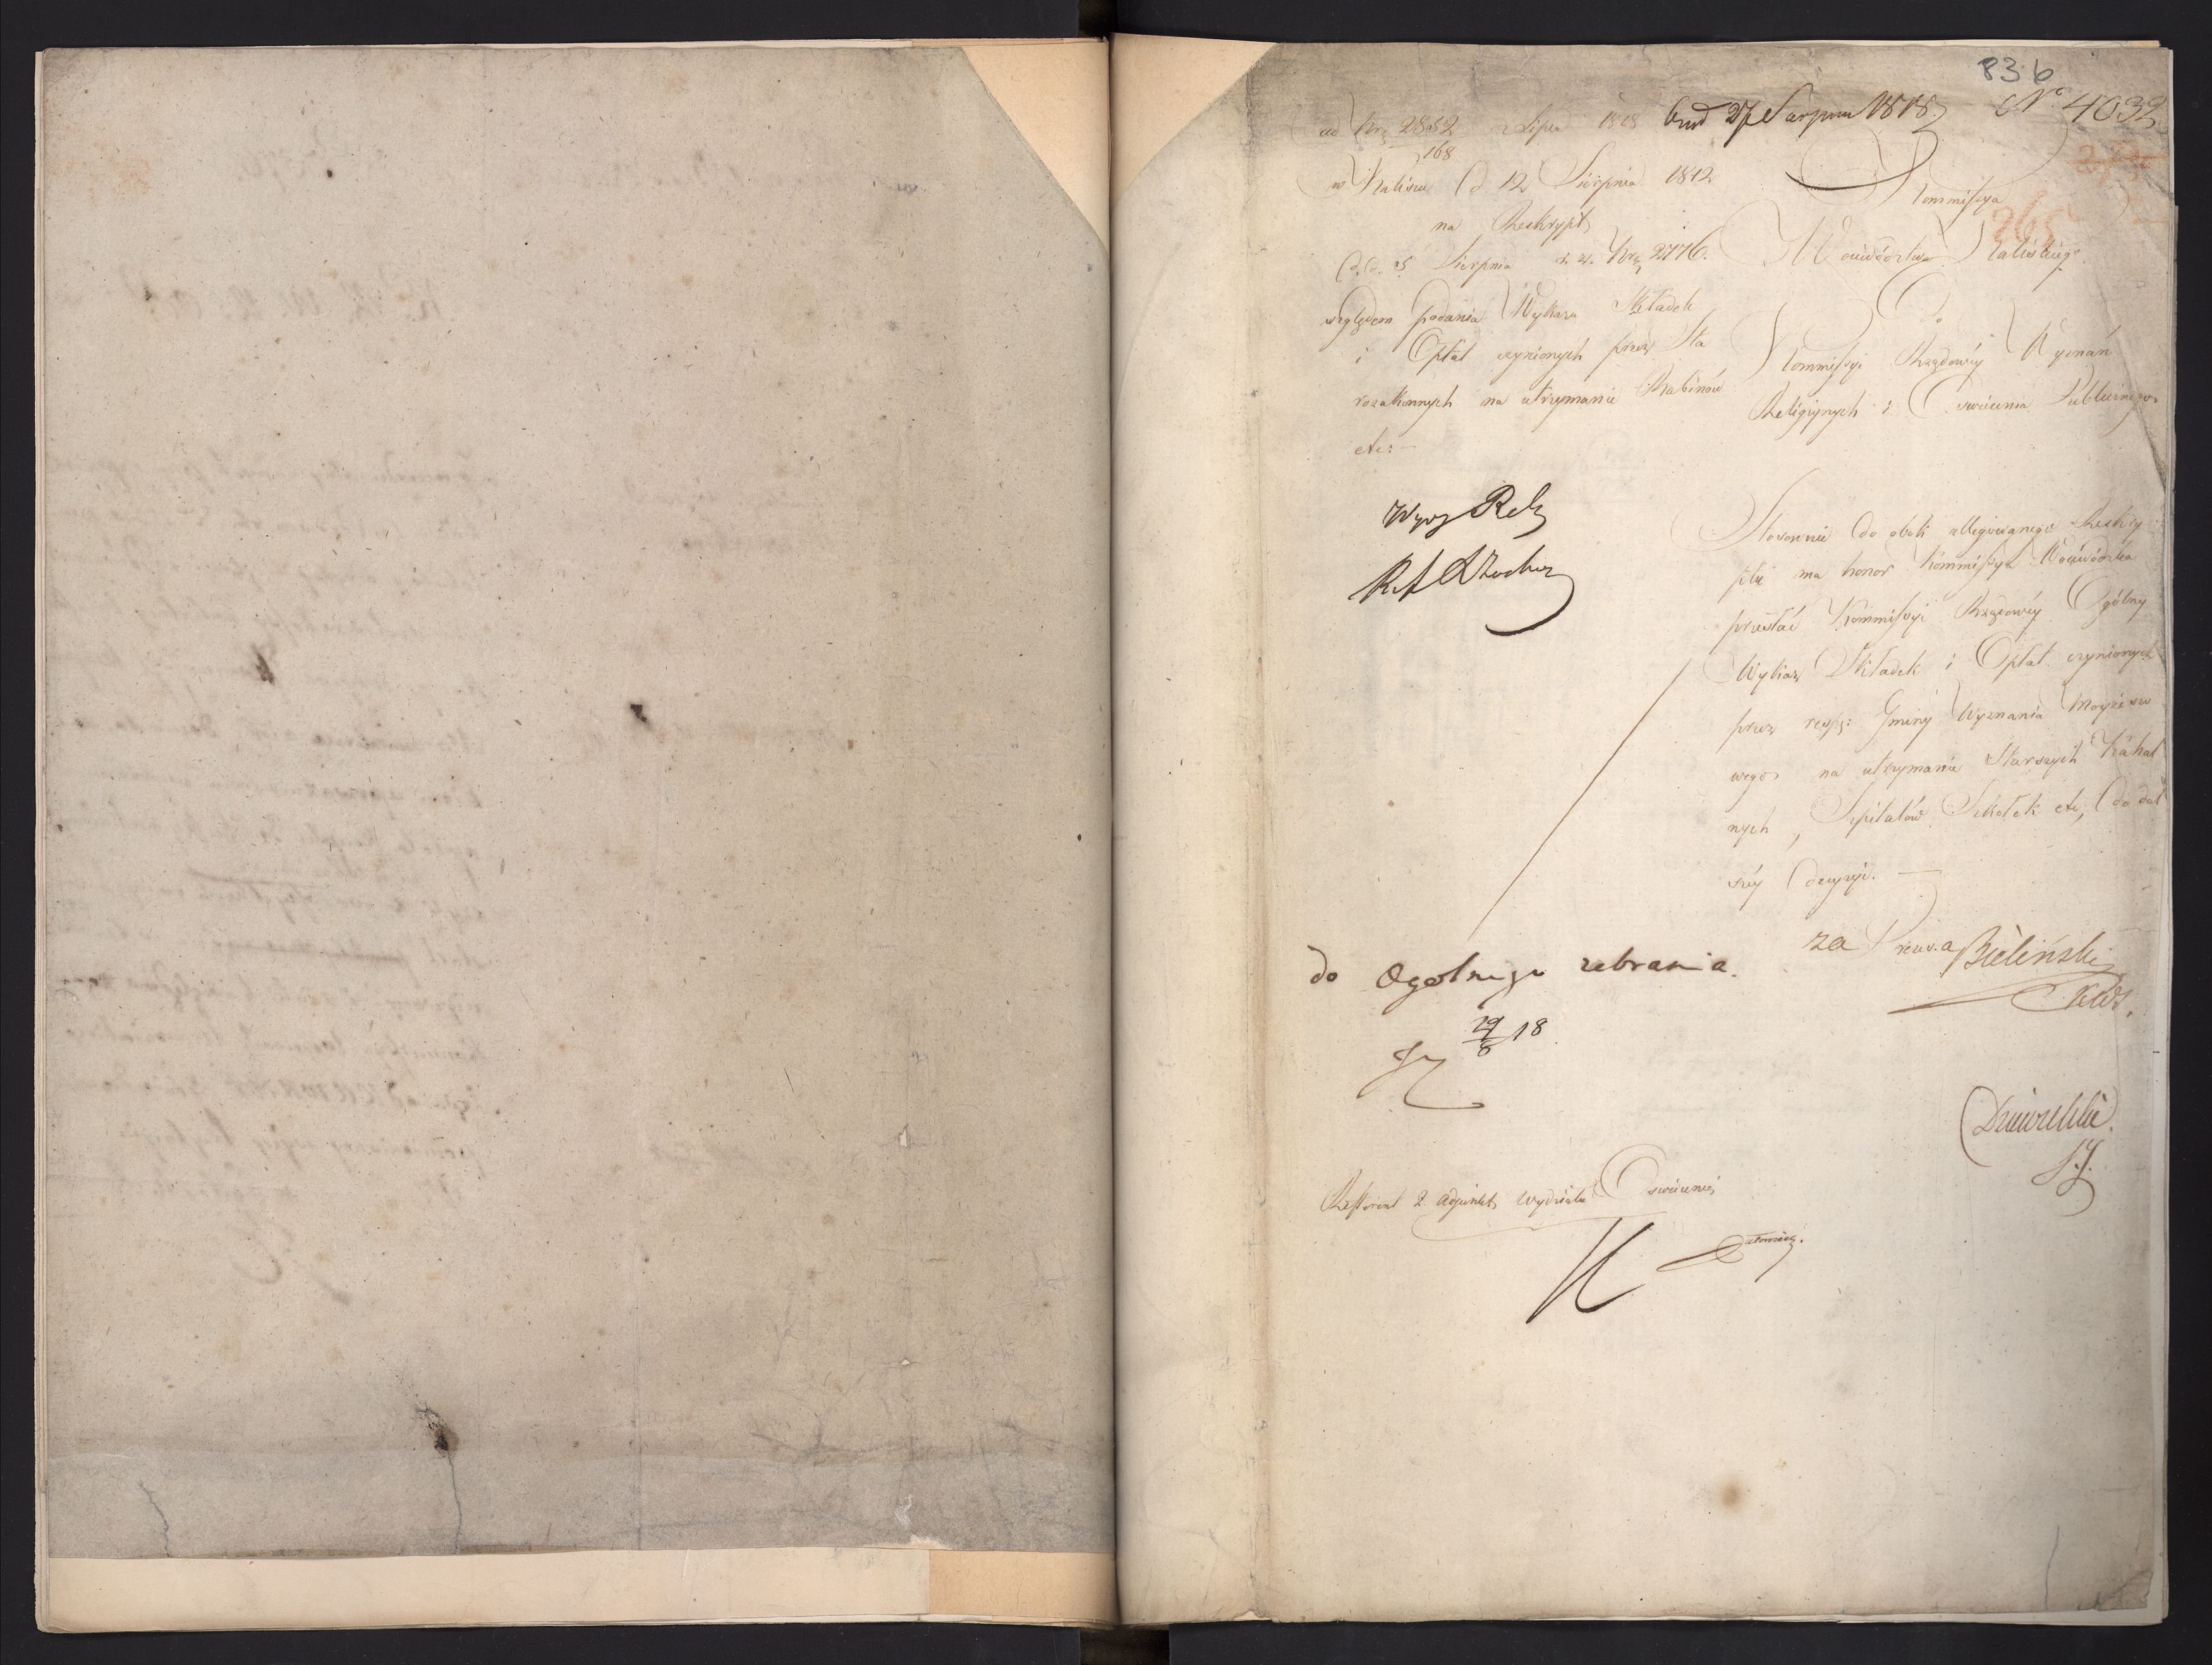 836
ad Nrz 2852 z Lipca 1818 bud 27 Sierpnia 1818. No 4032
168
w Kaliszu d 12 Sierpnia 1812
na Reskrypt
d.d. 5 Sierpnia r. z. Nrz 2776.
względem podania Wykazu Składek
i Opłat czynionych przez Sta
rozakonnych na utrzymanie Rabinów
etc:
Kommissya
265
Woiewództwa Kaliskiego
Do
Kommissyi Rządowéy Wyznań
Religiynych i Oswiecenia Publicznego
Wyzy Rel
Stosownie do obok allegowanego Reskry
ptu ma honor Kommissya Woiewódzka
przesłać Kommissyi Rządowéy Ogólny
Wykaz Składek i Opłat czynionych
przez resp: Gminy Wyznania Moyżeszo
wego na utrzymanie Starszych Kahal
nych, Szpitalów Szkołek etc, do dal
széy decyzyi. —
za Prezesa Bieliński
do Ogolnego zebrania.
29/8 18
Refferent 2 Adjunkt Wydziału Oswiecenia